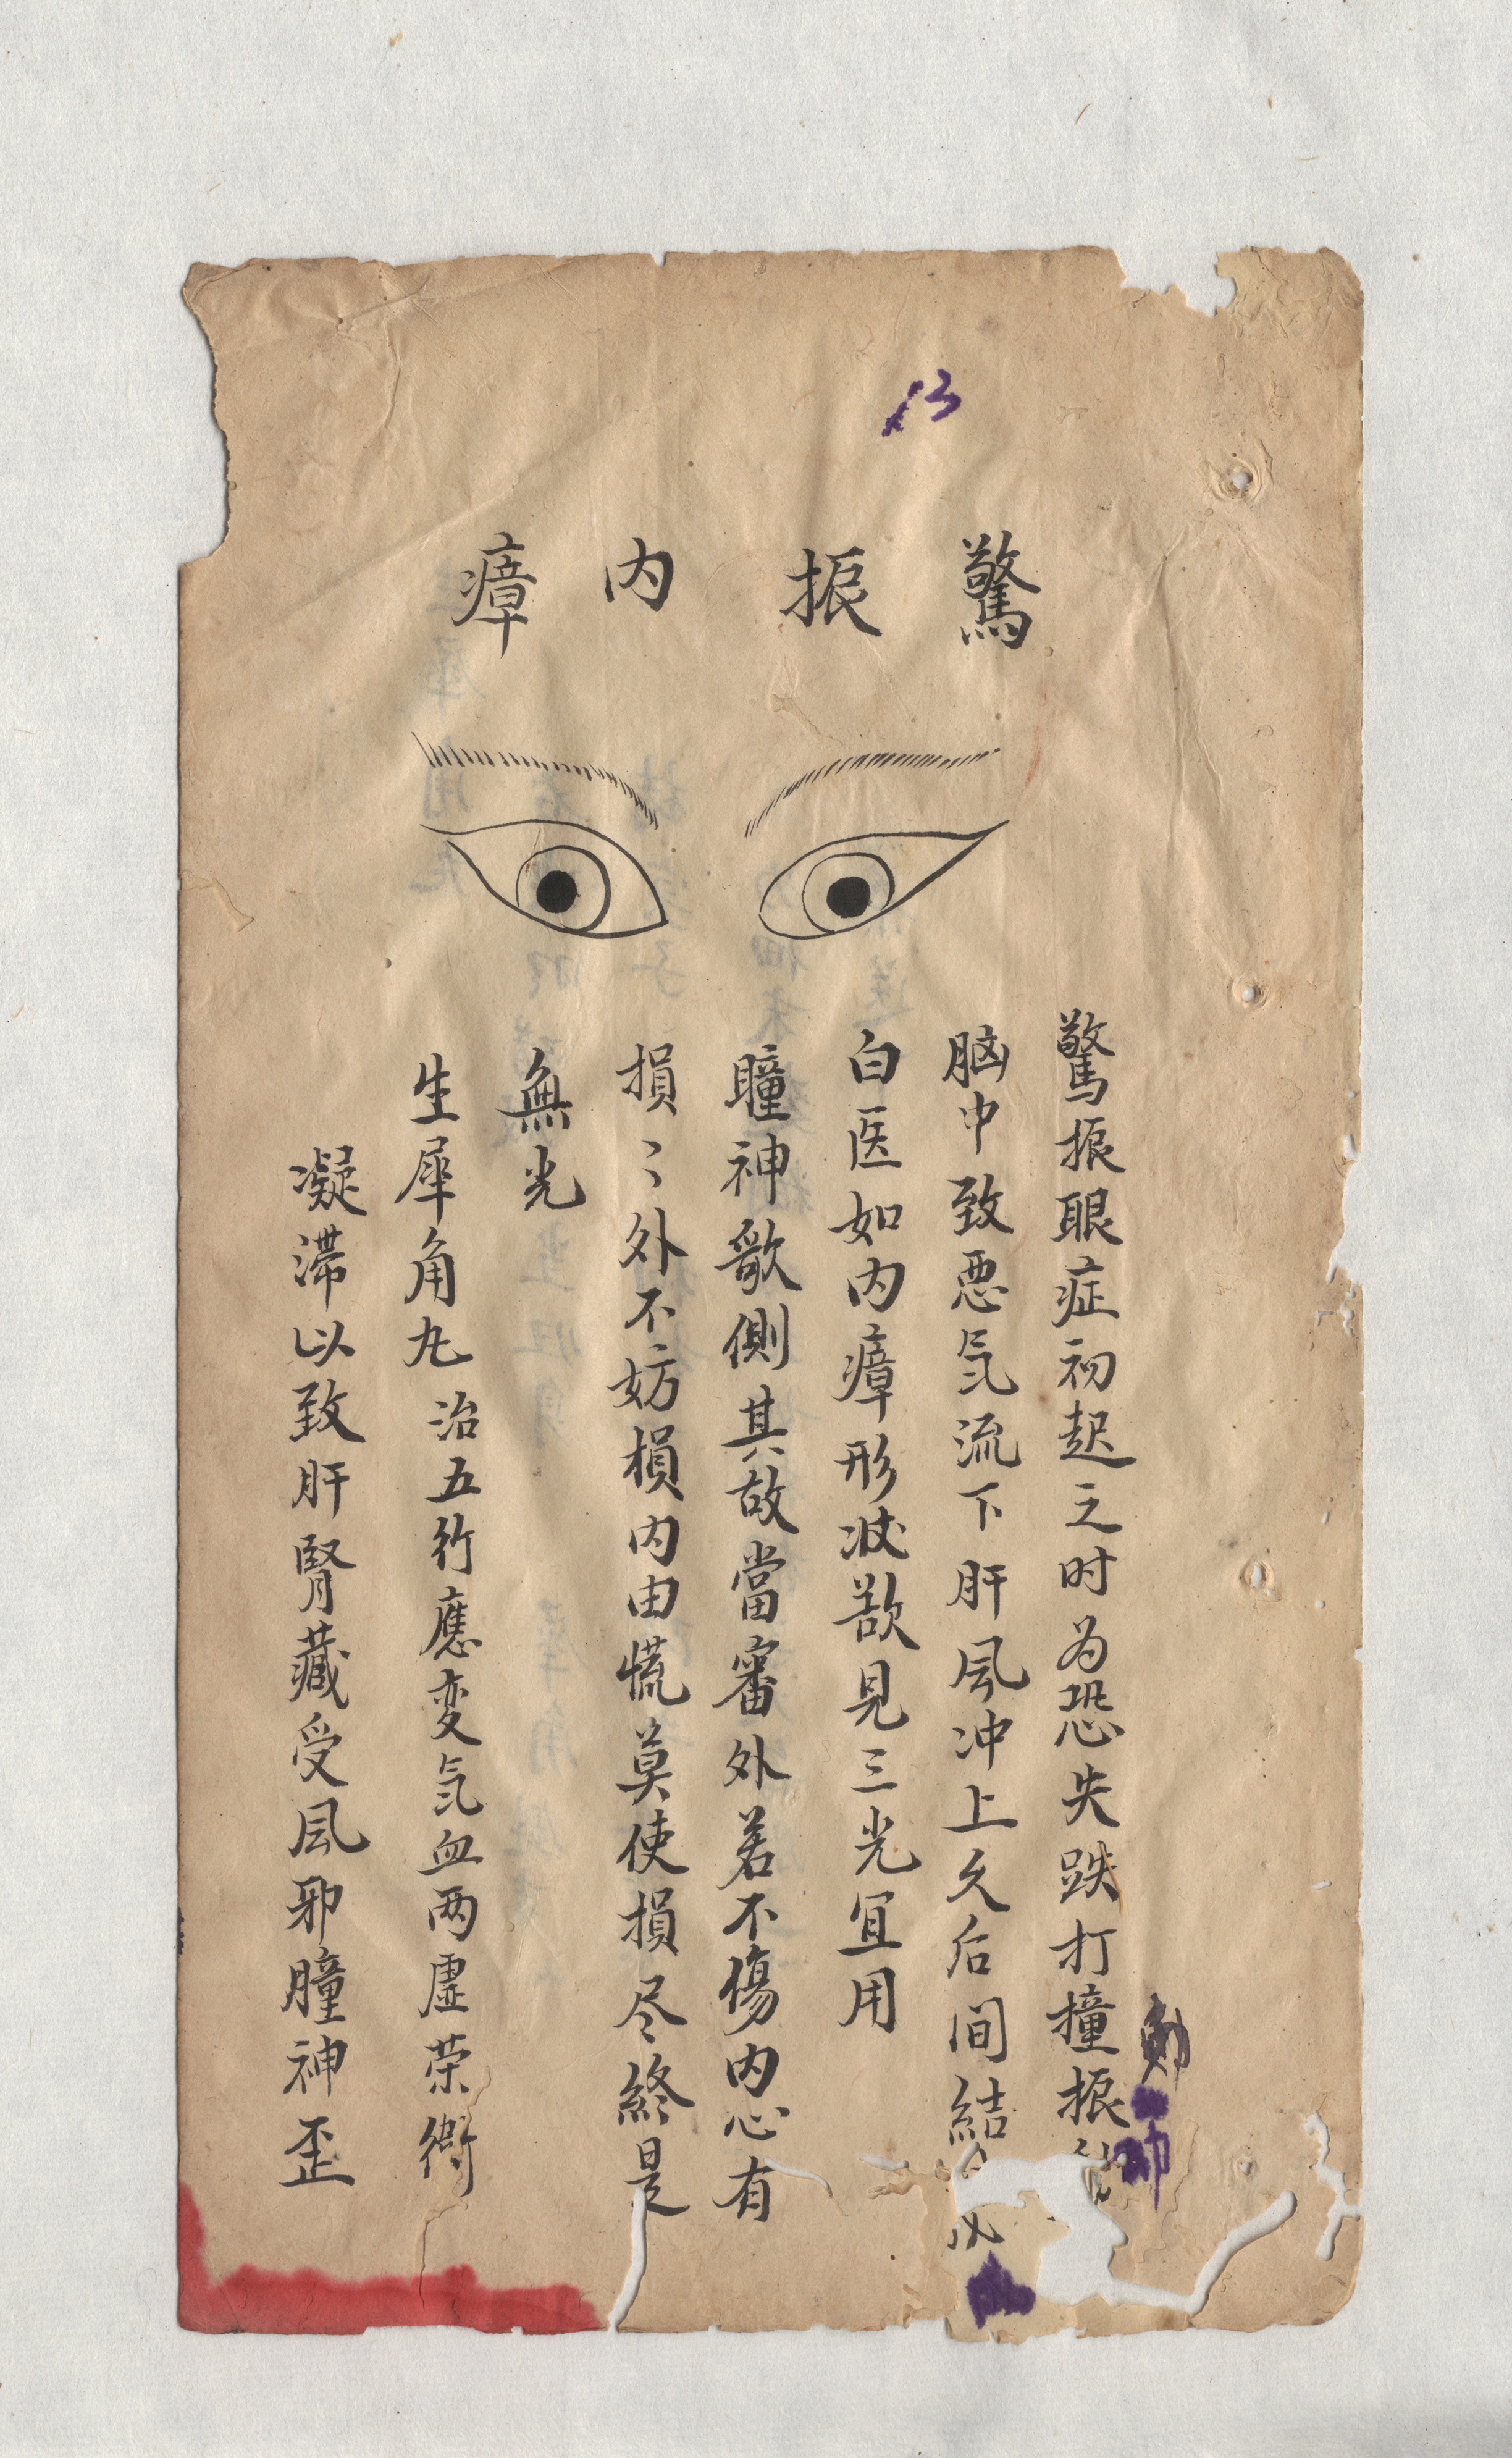 13
驚振内瘴
驚振眼症初起之时为恐失跌打撞振
脑中致恶気流下肝风冲上久后间結
白医如内瘴形 歆見三光宜用
瞳神歌側其故當審外若不傷内心有
損〻外不妨損内由慌莫使損尽終是
無光
生犀角丸 治五行應变気血两虚荣衛
凝滞以致肝腎藏受风邪瞳神歪